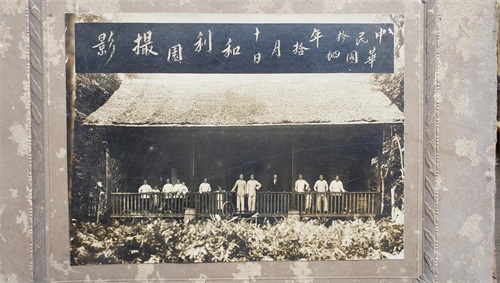 中華民國拾年拾月十日和利園撮影